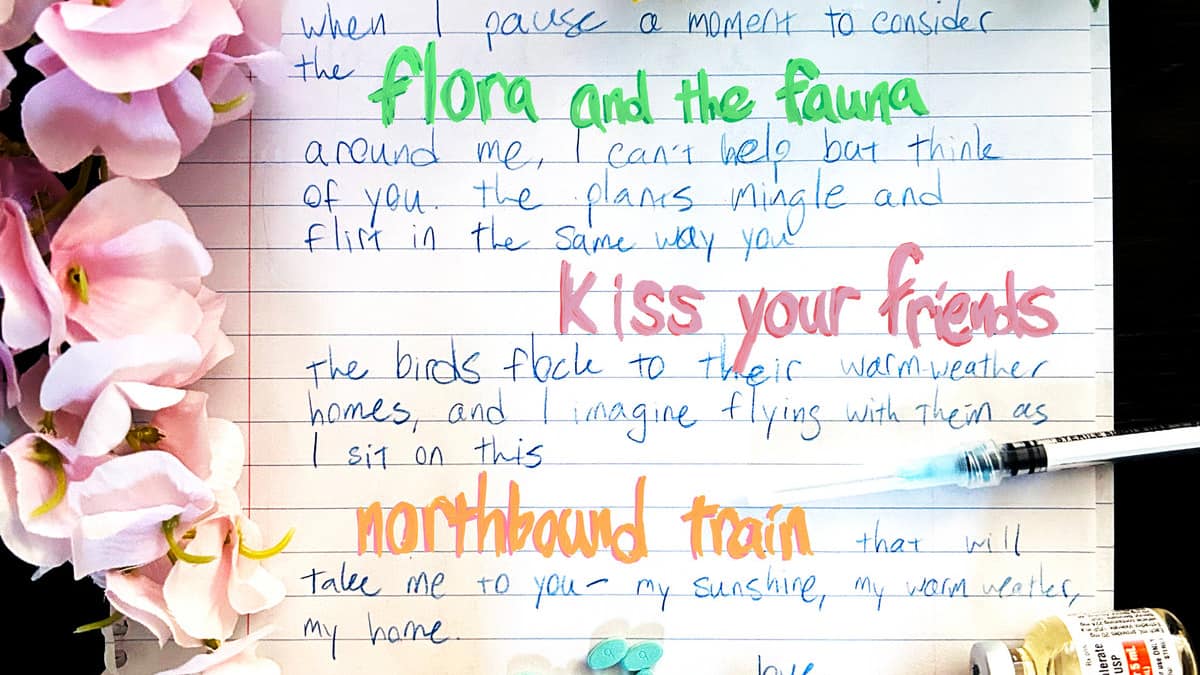 when I pause a moment to consider
the flora and the fauna
around me, I can't help but think
of you. the plants mingle and
flirt in the same way you
kiss your friends
the birds flock to their warm-weather
homes, and I imagine flying with them as
I sit on this
northbound train that will
take me to you- my sunshine, my warm weather,
my home.
love
lerate
USP
5 mL